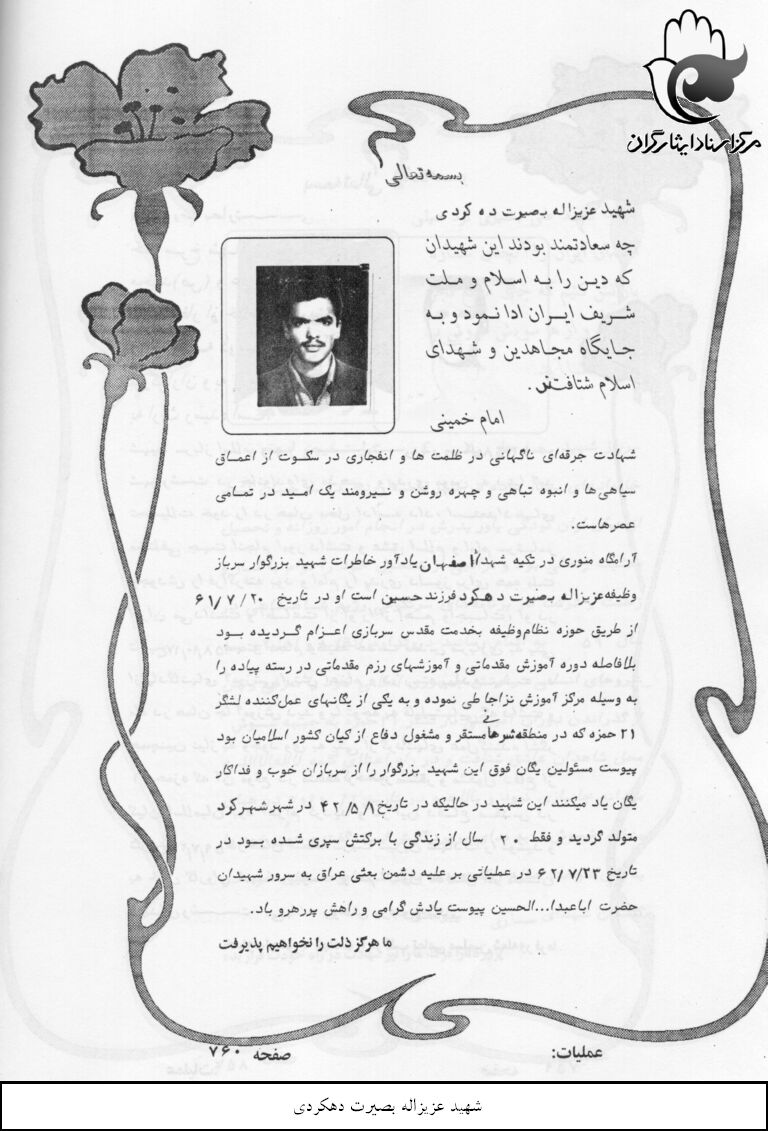 مرکز اسناد ایثارگران
بسمه تعالی
شهید عزیزاله بصیرت ده کردی
چه سعادتمند بودند این شهیدان
که دین را به اسلام و ملت
شریف ایران ادا نمود و به
جایگاه مجاهدین و شهدای
اسلام شتافتند.
امام خمینی
شهادت جرقه‌ای ناگهانی در ظلمت ها و انفجاری در سکوت از اعماق
سیاهی‌ها و انبوه تباهی و چهره روشن و نیرومند یک امید در تمامی
عصرهاست.
آرامگاه منوری در تکیه شهدا اصفهان یادآور خاطرات شهید بزرگوار سرباز
وظیفه عزیزاله بصیرت دهکرد فرزند حسین است او در تاریخ ۶۱/۷/۲۰
از طریق حوزه نظام وظیفه بخدمت مقدس سربازی اعزام گردیده بود
بلافاصله دوره آموزش مقدماتی و آموزشهای رزم مقدماتی در رسته پیاده را
به وسیله مرکز آموزش نزاجا طی نموده و به یکی از یگانهای عمل‌کننده لشگر
۲۱ حمزه که در منطقه مستقر و مشغول دفاع از کیان کشور اسلامیان بود
پیوست مسئولین یگان فوق این شهید بزرگوار را از سربازان خوب و فداکار
یگان یاد میکنند این شهید در حالیکه در تاریخ ۴۲/۵/۸ در شهر شهرکرد
متولد گردید و فقط ۲۰ سال از زندگی با برکتش سپری شده بود در
تاریخ ۶۲/۷/۲۳ در عملیاتی بر علیه دشمن بعثی عراق به سرور شهیدان
حضرت اباعبدا...الحسین پیوست یادش گرامی و راهش پررهرو باد.
ما هرگز ذلت را نخواهیم پذیرفت
عملیات:
صفحه ۷۶۰
شهید عزیزاله بصیرت دهکردی